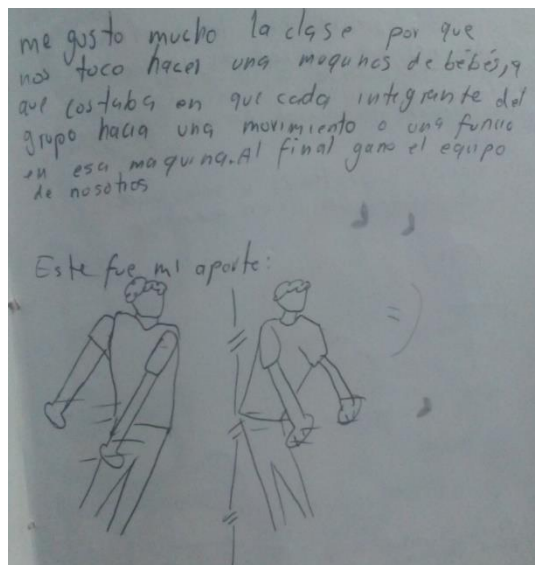 me gusto mucho la clase por que
nos toco hacer una maqunas de bébés,a
que costaba en que cada integrante del
grupo hacia una movimiento o una funcio
en esa maquina.Al final gano el equipo
de nosotros
Este fue mi aporte:
=)